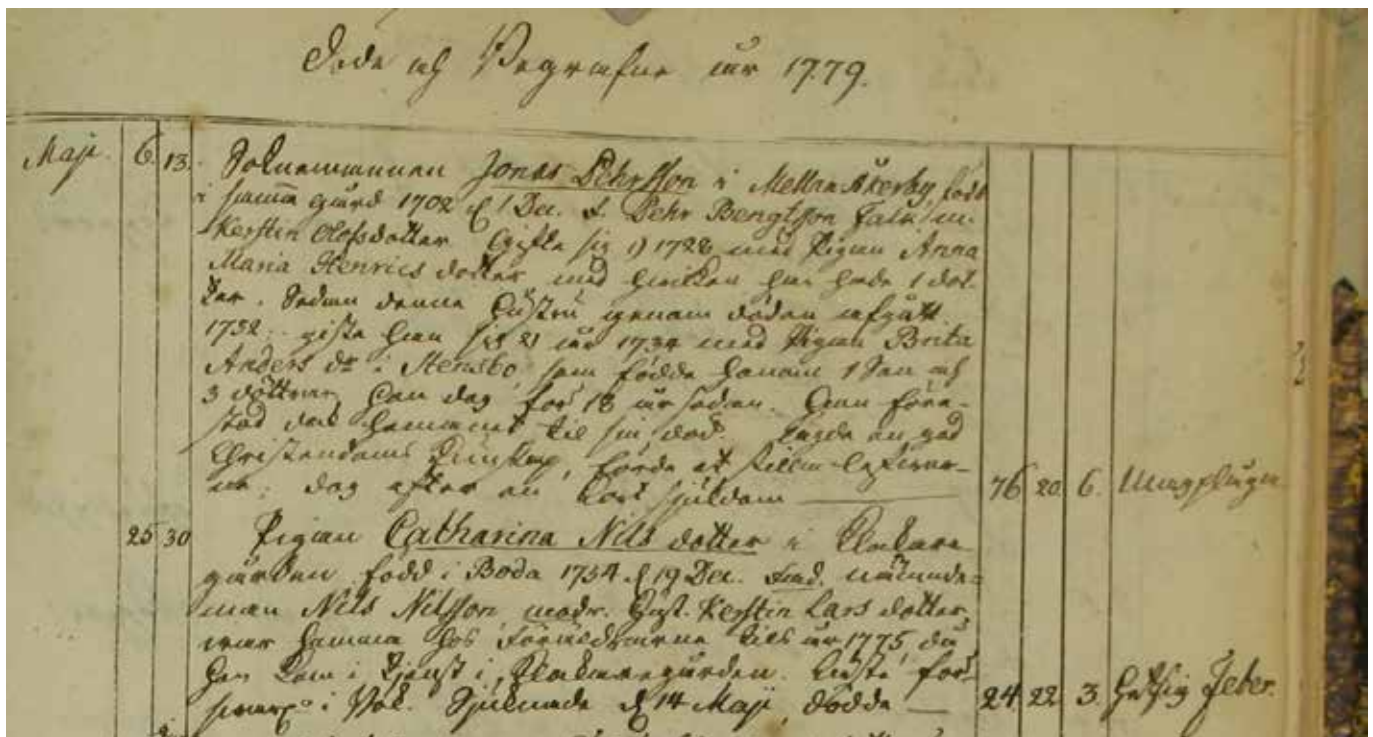 Döde och Begrafne år 1779.
Maji. 6. 13. Socknemannen Jonas Pehrsson i Mellan Åkerby, född
i samma gård 1702 d. 1 Dec. F. Pehr Bengtsson Falk m.
Kerstin Olofsdotter. Gifte sig 1) 1728 med Pigan Anna
Maria Henrics dotter med hvilken han hade 1 dot
ter. Sedan denna hustru genom döden afgått
1732. gifte han sig 2) år 1734 med Pigan Brita
Anders dr i Stensbo, som födde honom 1 Son och
3 döttrar, hon dog för 18 år sedan. Han före-
stod det hemmanet til sin död. Ägde en god
Christendoms kunskap, förde et
dog efter en kort sjukdom 76 20. 6.
25 30 Pigan Catharina Nils dotter i Klockare
gården född i Boda 1754 d. 19 Dec. Fad. nämnde-
man Nils Nilsson, modr. Hust. Kerstin Lars dotter,
war hemma hos Föräldrarne tils år 1775, då
hon kom i tjenst i Klockaregården. Läste för-
i Bok. Sjuknade d. 14 Maji, dödde 24 22. 3. Hetsig Feber.